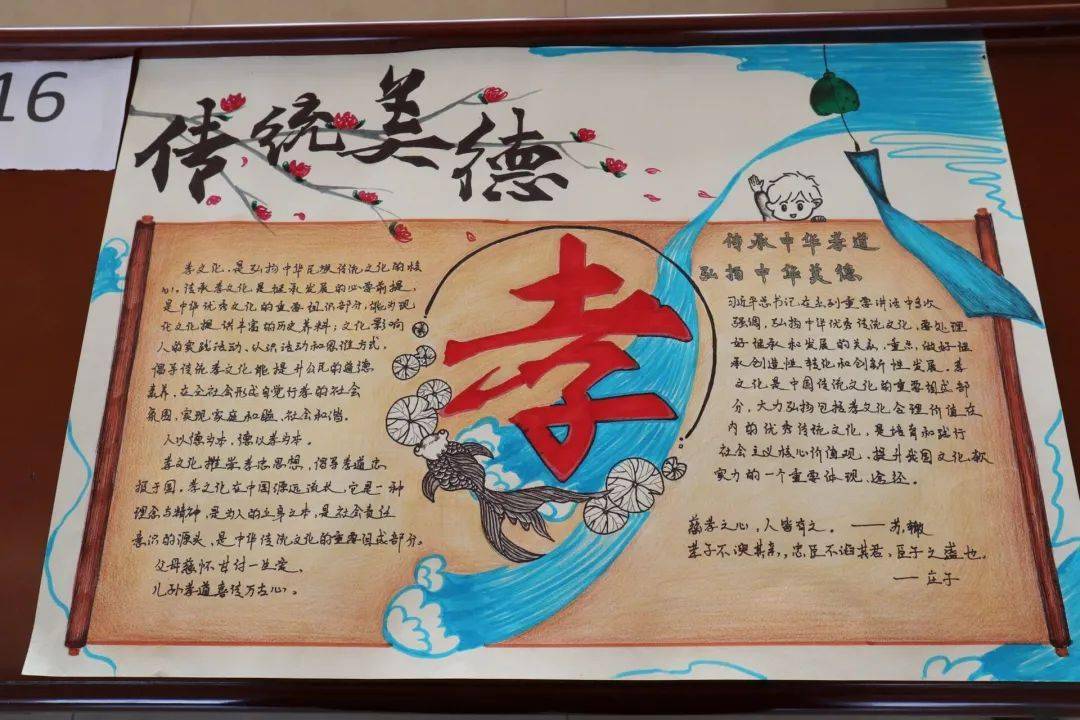 16
传统美德
孝文化,是弘扬中华民族传统文化的核
心,传承孝文化是继承发展的必要前提,
是中华优秀文化的重要组织部分,能为现
代文化提供丰富的历史养料;文化影响
人的实践活动、认识活动和思维方式,
倡导传统孝文化能提升公民的道德,
素养,在全社会形成自觉行孝的社会
氛围,实现家庭和睦,社会和谐。
人以德为本,德以孝为本。
孝文化推崇孝忠思想,倡导孝道忠
报于国。孝文化在中国源远流长,它是一种
理念与精神,是为人的立身之本,是社会责任
意识的源头,是中华传统文化的重要组成部分。
父母慈怀甘付一生爱,
儿孙孝道喜传万古心。
孝
传承中华孝道
弘扬中华美德
习近平总书记在系列重要讲话中多次
强调,弘扬中华优秀传统文化,要处理
好继承和发展的关系,重点做好继
承创造性转化和创新性发展。孝
文化是中国传统文化的重要组成部
分,大力弘扬包括孝文化合理价值在
内的优秀传统文化,是培育和践行
社会主义核心价值观,提升我国文化软
实力的一个重要体现,途径。
慈孝之心,人皆有之。——苏辙
孝子不谀其亲,忠臣不谄其君,臣子之盛也。
——庄子